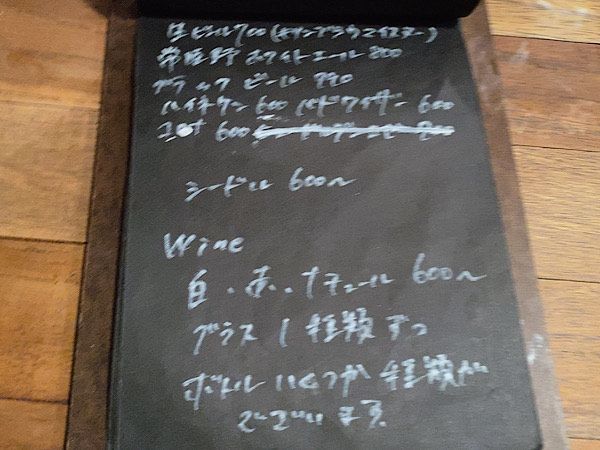 生ビール700(
常陸野 ホワイトエール 800
ブラック ビール 990
ハイネケン 600 バドワイザー 600
600
シードル 600〜
Wine
白・赤・ナチュール 600〜
グラス 1種類ずつ
ボトル いくつか 種類が
ございます